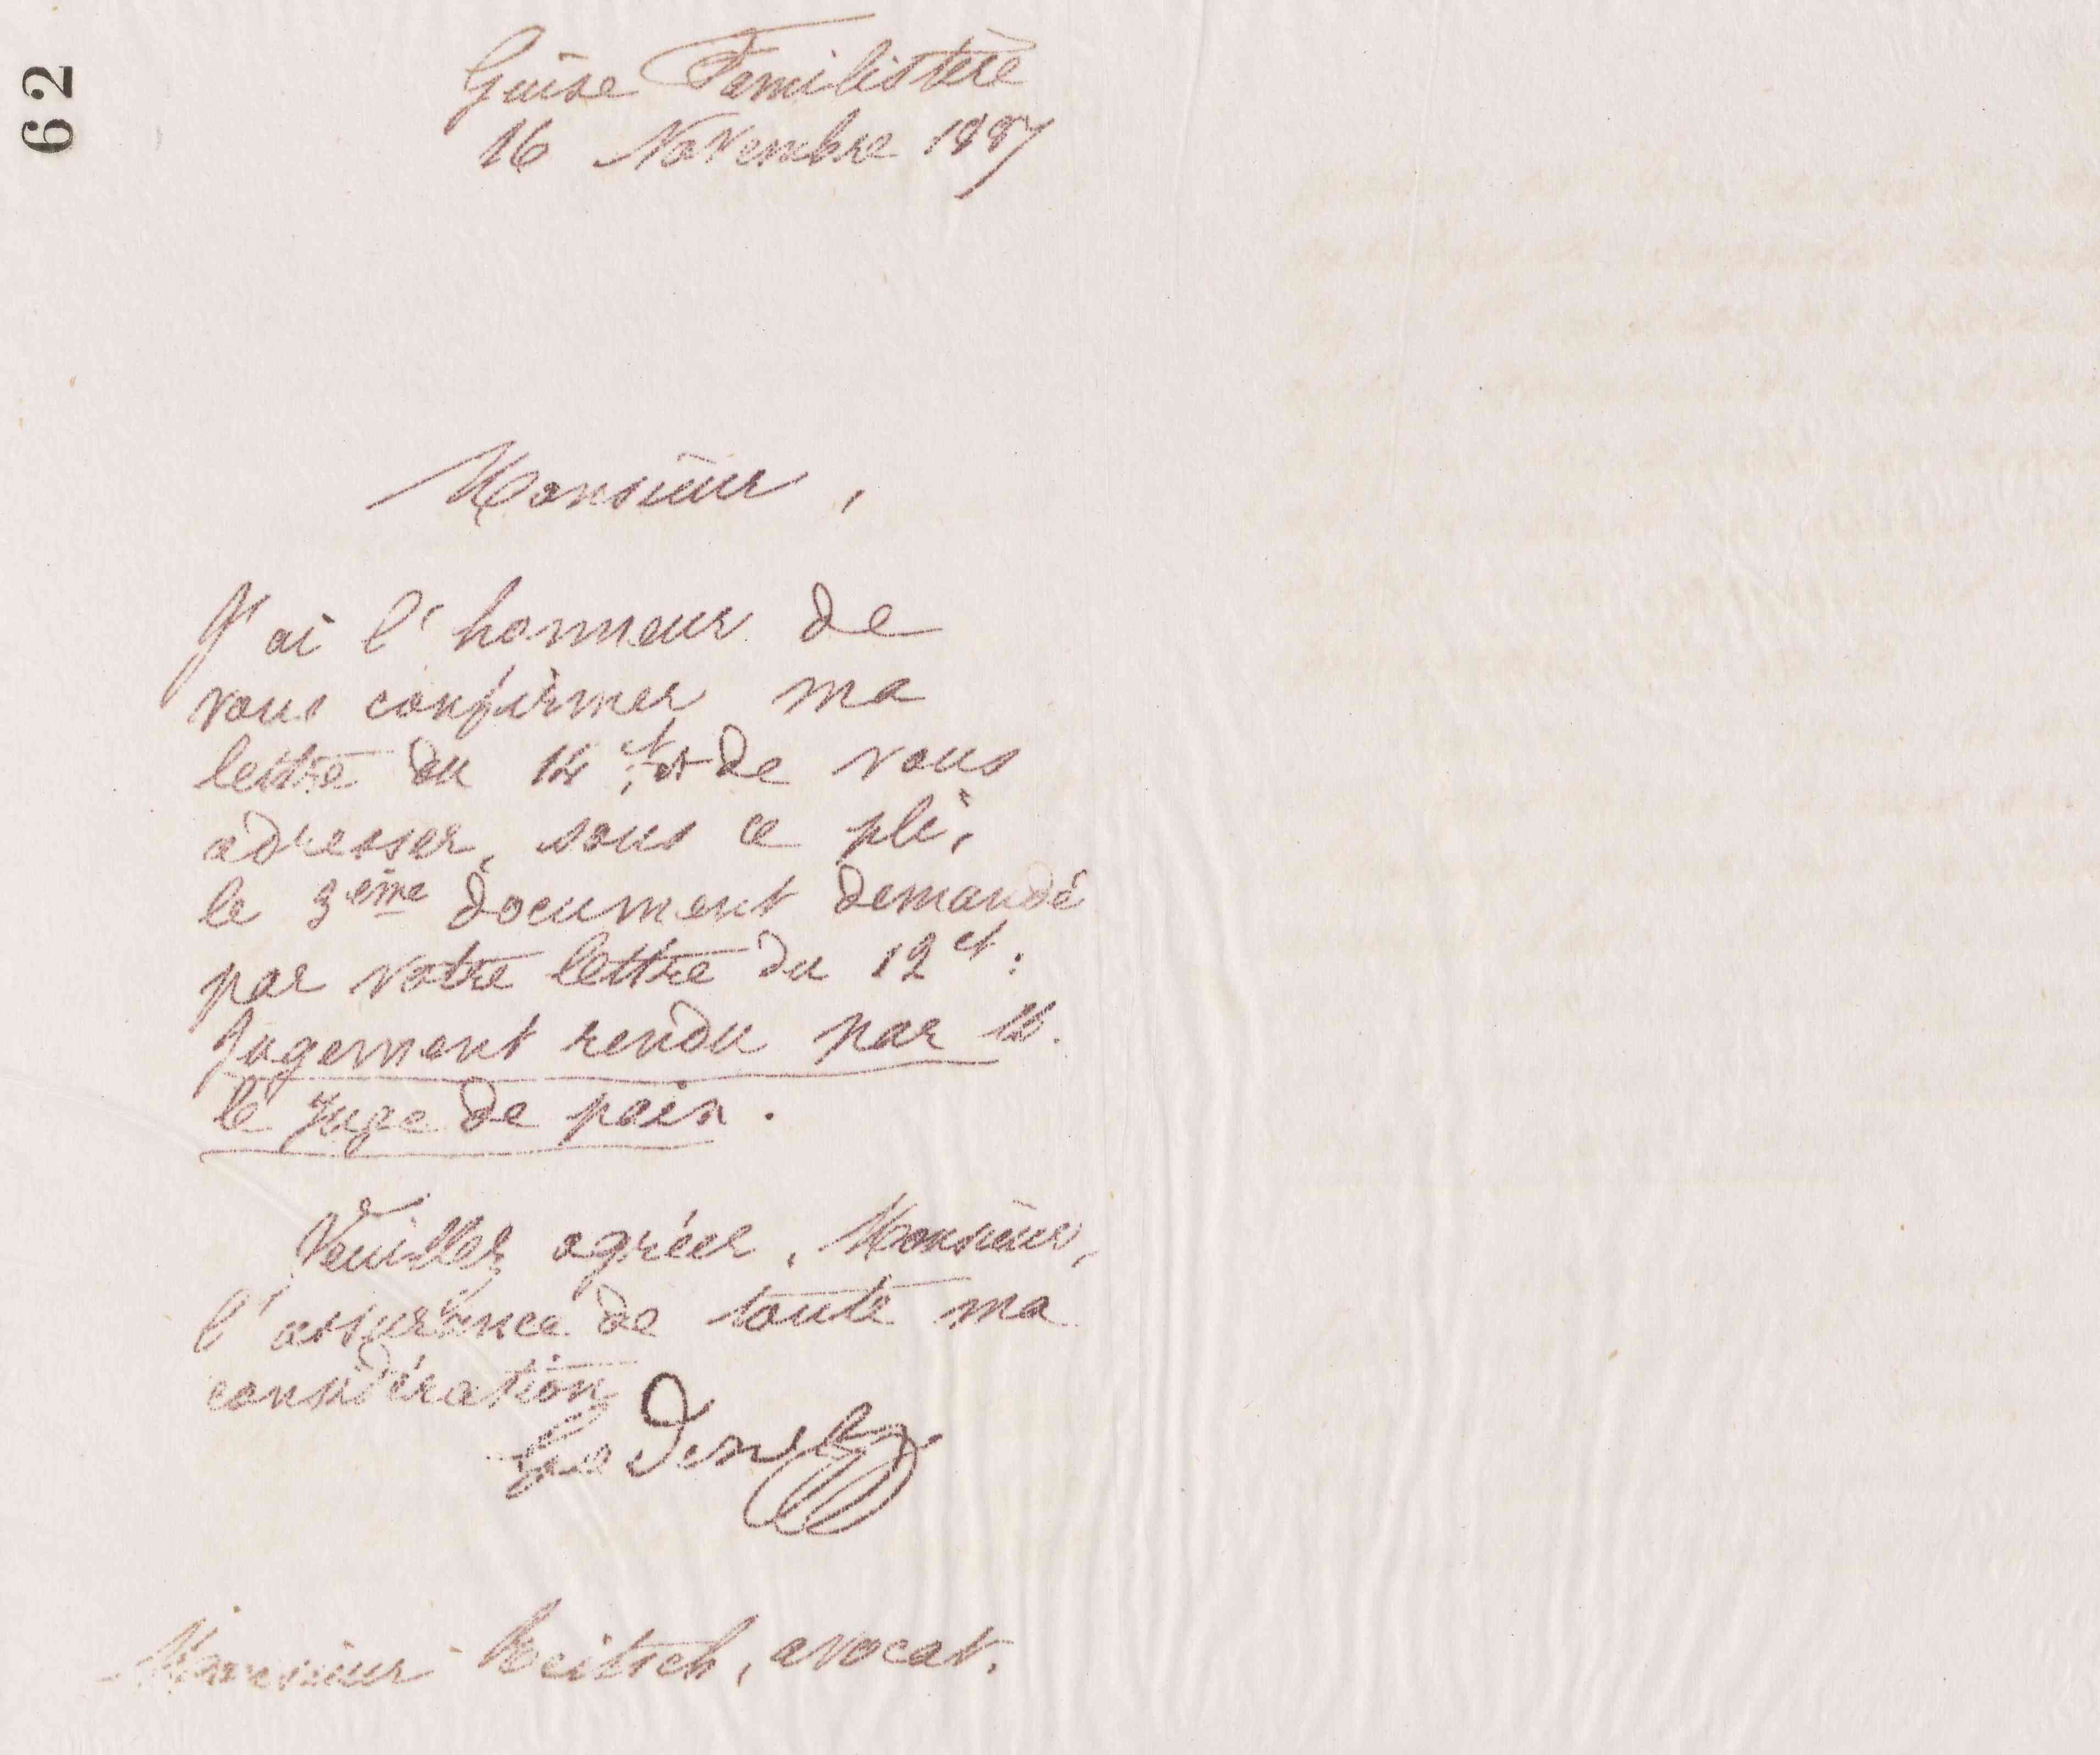 62
Guise Familistère
16 Novembre 1887
Monsieur,
J'ai l'honneur de
vous confirmer ma
lettre du 14 ct et de vous
adresser, sous ce pli,
le 3ème document demandé
par votre lettre du 12 ct :
Jugement rendu par M.
le Juge de paix.
Veuillez agréer, Monsieur,
l'assurance de toute ma
considération
Monsieur avocat.